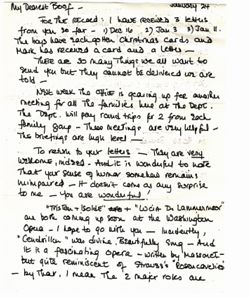 My Dearest Boof- January 24
For the record: I have received 3 letters
from you so far - 1) Dec 16 2) Jan 3 3) Jan 11.
The boys have each gotten Christmas cards and
Mark has received a card and a letter -
There are so many things we all want to
send you but they cannot be delivered we are
told -
Next week the office is gearing up for another
meeting for all the families here at the Dept.
The Dept. will pay round trips for 2 from each
family group - These meetings are very helpful -
The briefings are high level -
To return to your letters - They are very
welcome, indeed - And it is wonderful to note
that your sense of humor somehow remains
unimpaired - It doesn't come as any surprise
to me - You are wonderful!
"Tristan + Isolde" and "Lucia Di Lammermoor"
are both coming up soon at the Washington
Opera - I hope to go with you - Incidentally,
"Cendrillon" was divine, beautifully sung - And
it is a fascinating opera - written by Massenet -
but quite reminiscent of Strauss's Rosencavalier
- by that, I mean the 2 major roles are